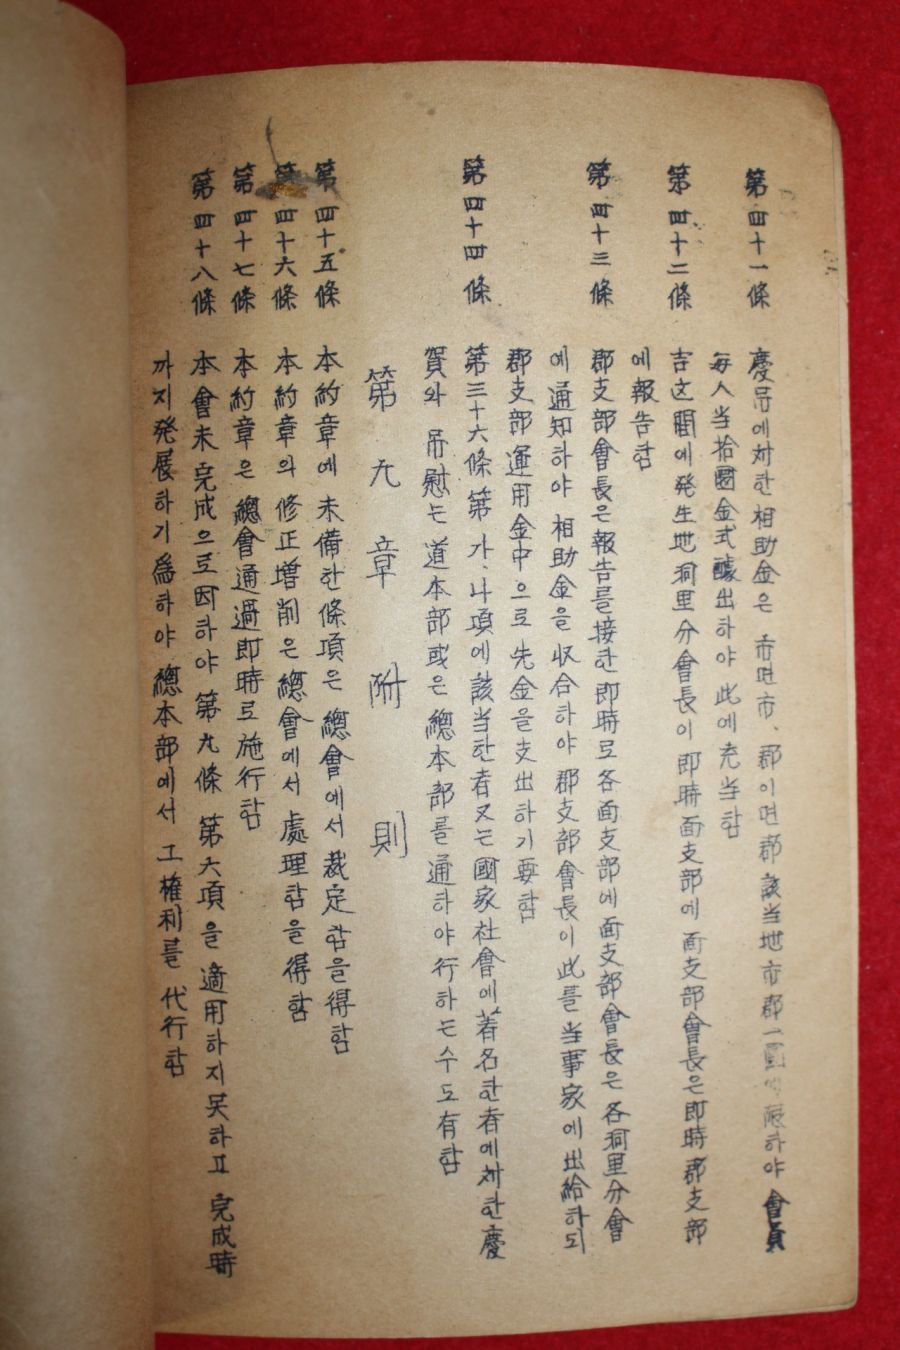 第四十一條 慶吊에対한相助金은 市面市、郡이면郡 該当地市郡一圓에限하야 會員
毎人当拾圜金式醵出하야 此에充当함
第四十二條 吉凶間에発生地洞里分會長이 即時面支部에 面支部會長은即時郡支部
에報告함
第四十三條 郡支部會長은報告를接한即時로各面支部에面支部會長은各洞里分會
에通知하야 相助金을収合하야 郡支部會長이此를当事家에出給하되
郡支部運用金中으로先金을支出하기要함
第四十四條 第三十六條第가、나項에該当한者又는國家社會에著名한者에対한慶
賀와 吊慰는 道本部或은總本部를通하야行하는수도有함
第九章 附則
第四十五條 本約章에 未備한條項은 總會에서裁定함을得함
第四十六條 本約章의修正增削은總會에서 處理함을得함
第四十七條 本約章은總會通過即時로施行함
第四十八條 本會未完成으로因하야 第九條 第六項을適用하지못하고 完成時
까지発展하기爲하야總本部에서 그權利를代行함